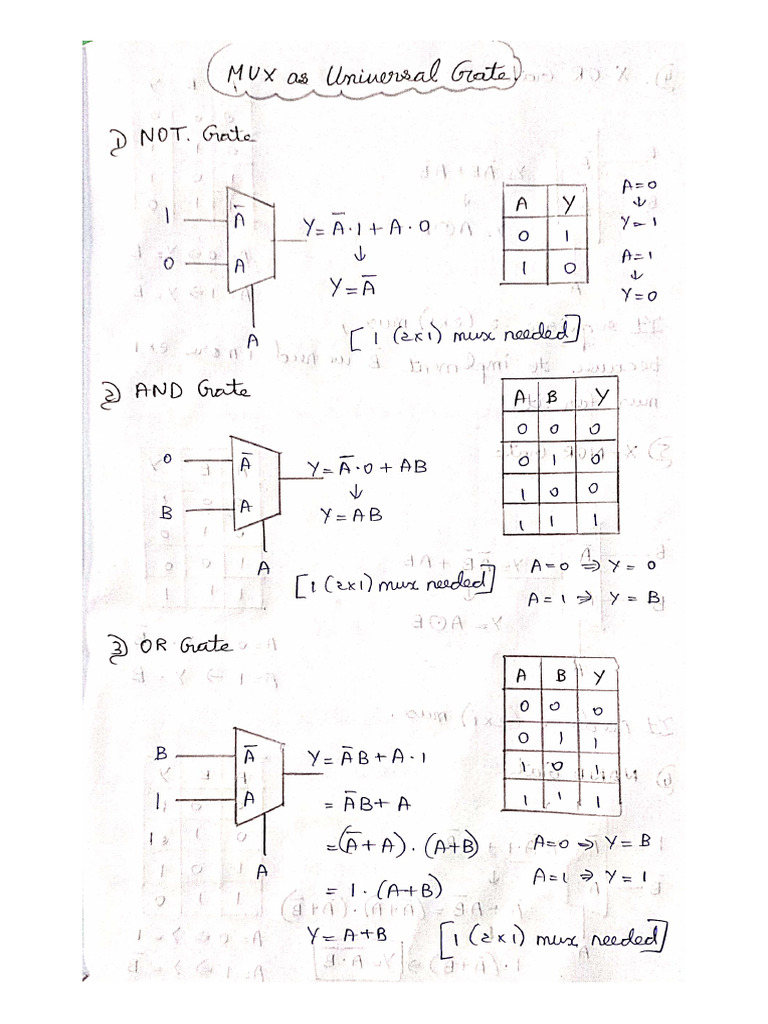 MUX as Universal Gate
1) NOT. Gate
1 Ā
0 A
A
Y = Ā·1 + A·0
↓
Y = Ā
[1 (2x1) mux needed]
A Y
0 1
1 0
A=0
↓
Y=1
A=1
↓
Y=0
2) AND Gate
0 Ā
B A
A
Y = Ā·0 + AB
↓
Y = AB
[1 (2x1) mux needed]
A B Y
0 0 0
0 1 0
1 0 0
1 1 1
A=0 ⇒ Y = 0
A=1 ⇒ Y = B
3) OR Gate
B Ā
1 A
A
Y = ĀB + A·1
= ĀB + A
= (Ā + A)·(A+B)
= 1·(A+B)
Y = A+B
A B Y
0 0 0
0 1 1
1 0 1
1 1 1
A=0 ⇒ Y = B
A=1 ⇒ Y = 1
[1 (2x1) mux needed]